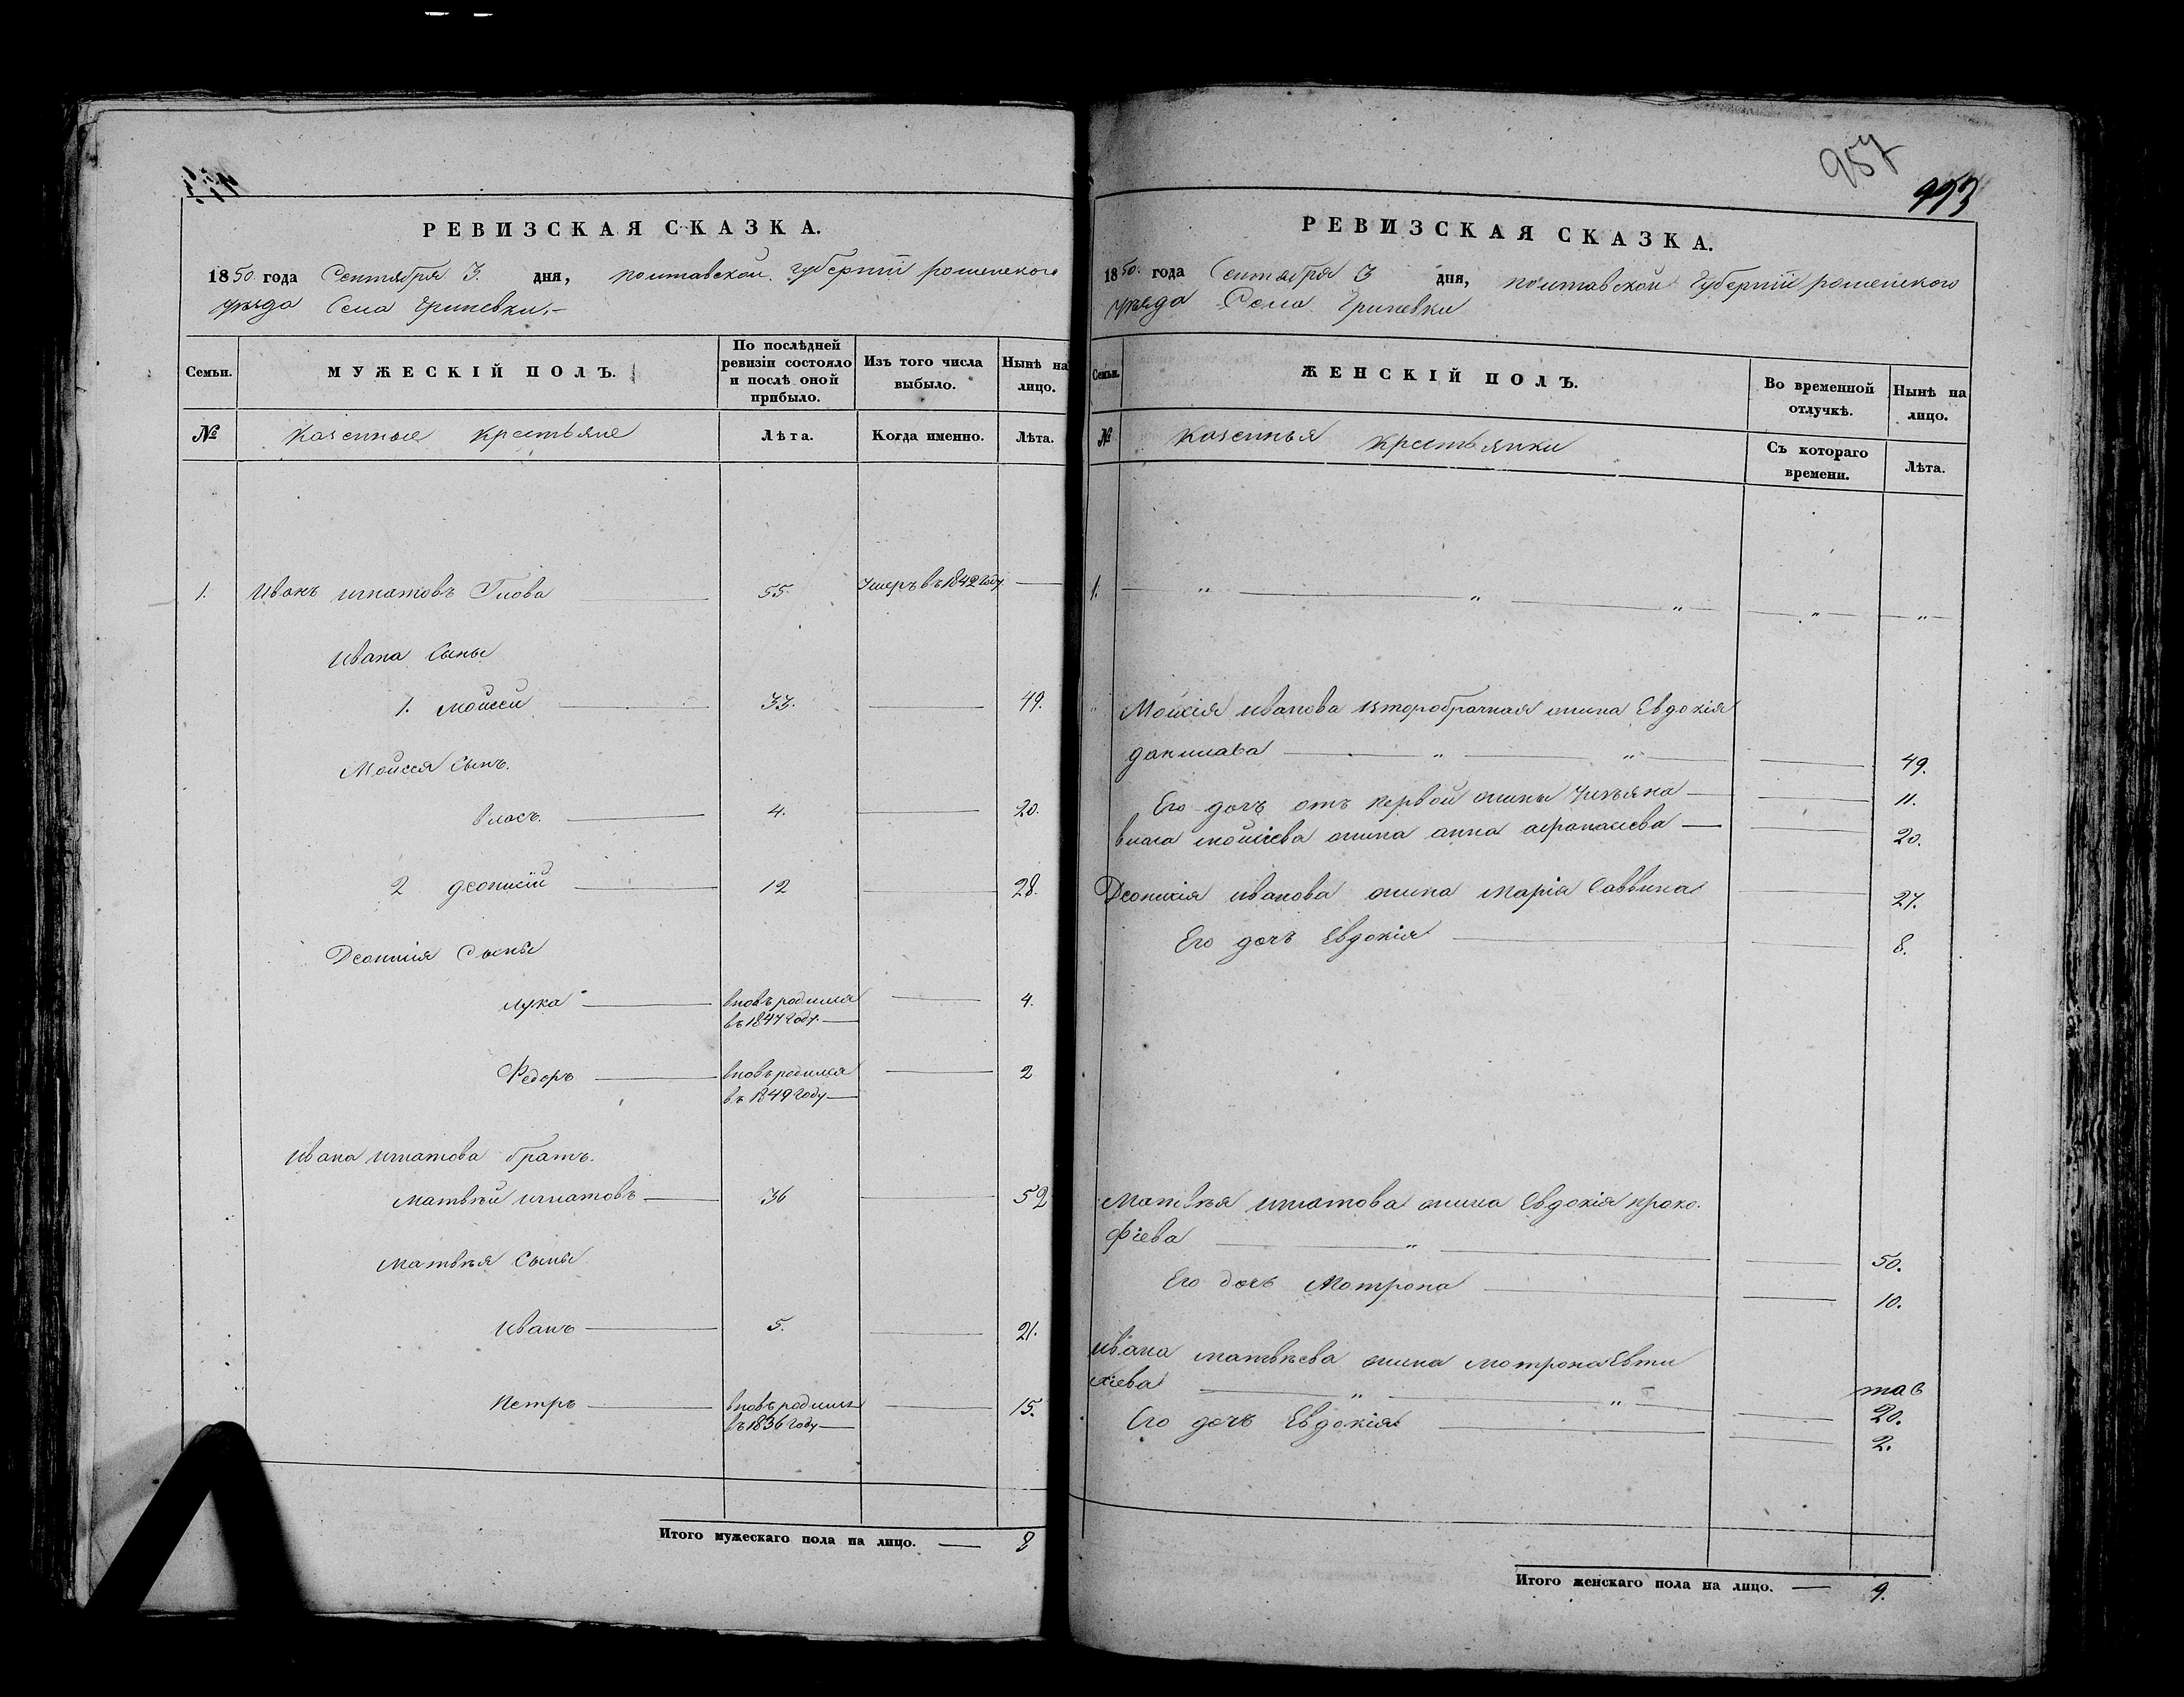 РЕВИЗСКАЯ СКАЗКА.
1850. года Сентября 3. дня, полтавской губерніи роменского
уѣзда Села Гриневки.
Семьи.
МУЖЕСКІЙ ПОЛЪ.
По послѣдней ревизіи состояло и послѣ оной прибыло.
Изъ того числа выбыло.
Нынѣ на лицо.
№ Казенные крестьяне Лѣта. Когда именно. Лѣта.
1. Иванъ игнатовъ 55. Умеръ въ 1842 году
Ивана Сыны
1. Мойсей 33. 49.
Мойсея Сынъ.
власъ. 4. 20.
2 деонисій 12 28.
Деонисія Сыны
лука вновь родился 4.
въ 1847 году.
Федоръ вновь родился 2
въ 1849 году
Ивана игнатова братъ.
Матвѣй игнатовъ 36 52
Матвѣя Сыны
Иванъ 5. 21.
Петръ вновь родился 15.
въ 1836 году
Итого мужескаго пола на лицо. 8
957
953
РЕВИЗСКАЯ СКАЗКА.
1850. года Сентября 3 дня, полтавской Губерніи роменского
уѣзда Села Гриневки
Семьи.
ЖЕНСКІЙ ПОЛЪ.
Во временной отлучкѣ.
Нынѣ на лицо.
№ Казенныя крестьянки Съ котораго времени. Лѣта.
1. " " " " "
Мойсія иванова второбрачная жина Евдокія
данилава " " 49.
Его дочь отъ первой жины Ульяна 11.
власа мойсіева жина анна афанасиева 20.
Деонисія иванова жина Марія Саввина 27.
Его дочь Евдокія 8.
Матвѣя игнатова жина Евдокія проко.
фіева " 50.
Его дочь Мотрона 10.
Ивана матвѣева жина мотрона Евти
хіева " " 20.
Его дочь Евдокія 2.
Итого женскаго пола на лицо. 9.